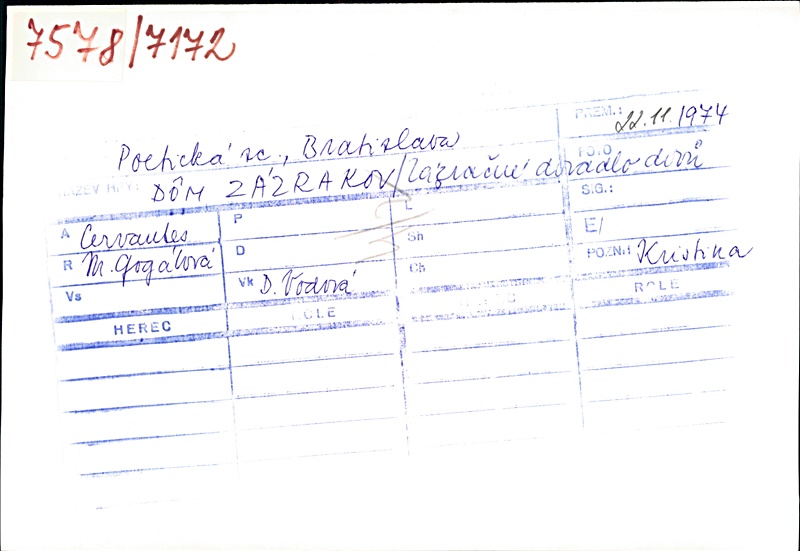 7578/7172
PREM.: 22.11.1974
Poetická sc., Bratislava
FOTO
NÁZEV HRY: DÔM ZÁZRAKOV/Zázračné divadlo divů
S.G.:
A Cervantes
P
L
E/
R M. Gogálová
D
Sh
POZN.: Kristina
Vs
Vk D. Vodová
Ch
HEREC
ROLE
HEREC
ROLE